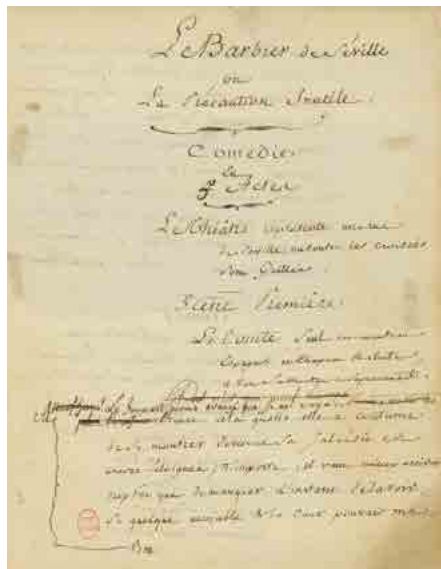 Le Barbier de Séville
ou
La Précaution Inutile.
Comédie
en
Actes
Le Théâtre représente une rue
de Séville où toutes les croisées
sont Grillées.
Scène Première.
Le Comte seul
l'heure à la quelle elle a coutume
de se montrer derrière sa jalousie est
encore éloignée; n'importe, il vaut mieux arriver
trop tôt que de manquer l'instant de la voir.
Si quelque aimable de la Cour pouvait me